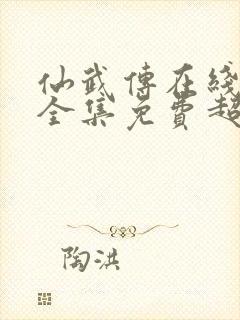 仙武傳在綫
全集免費超
陶洪